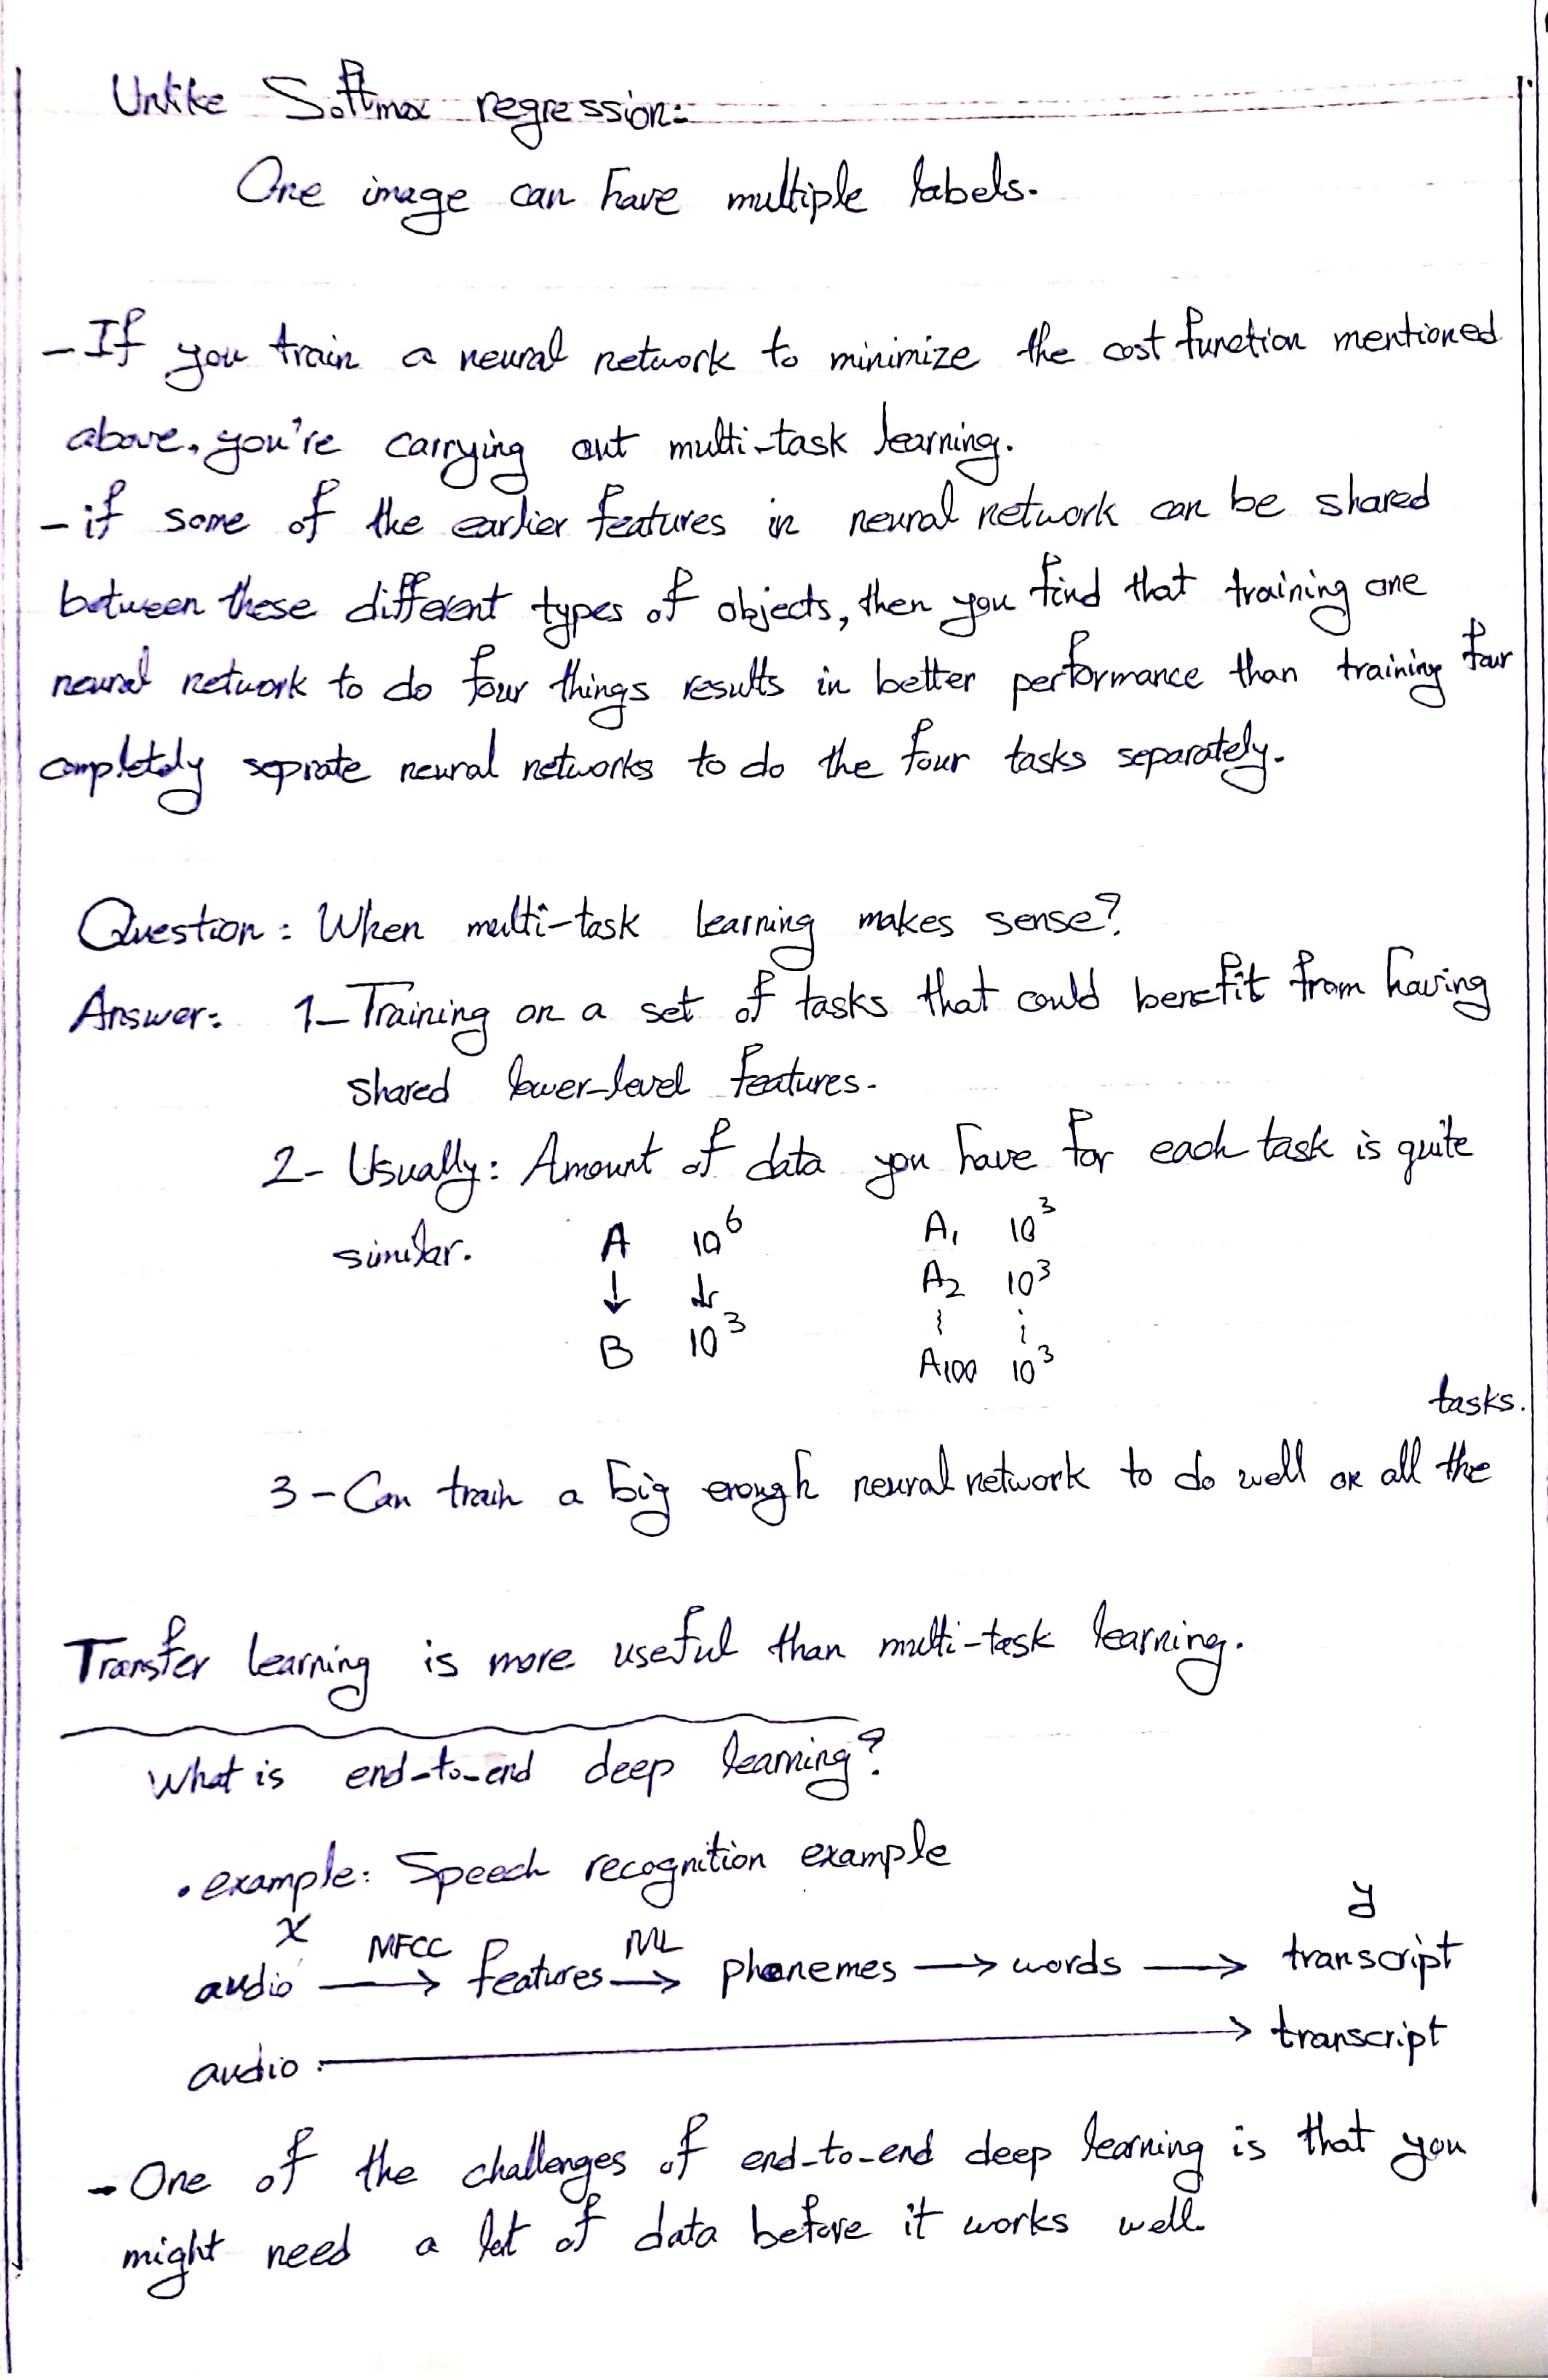 Unlike Softmax regression:
One image can have multiple labels.
- If you train a neural network to minimize the cost function mentioned
above, you're carrying out multi-task learning.
- if some of the earlier features in neural network can be shared
between these different types of objects, then you find that training one
neural network to do four things results in better performance than training four
completely seprate neural networks to do the four tasks separately.
Question: When multi-task learning makes sense?
Answer: 1- Training on a set of tasks that could benefit from having
shared lower-level features.
2- Usually: Amount of data you have for each task is quite
similar. A 10^6 A1 10^3
↓ ↓ A2 10^3
B 10^3 ⋮ ⋮
A100 10^3
3- Can train a big enough neural network to do well on all the tasks.
Transfer learning is more useful than multi-task learning.
What is end-to-end deep learning?
• example: Speech recognition example
x y
audio MFCC → features ML → phonemes → words → transcript
audio → transcript
- One of the challenges of end-to-end deep learning is that you
might need a lot of data before it works well.